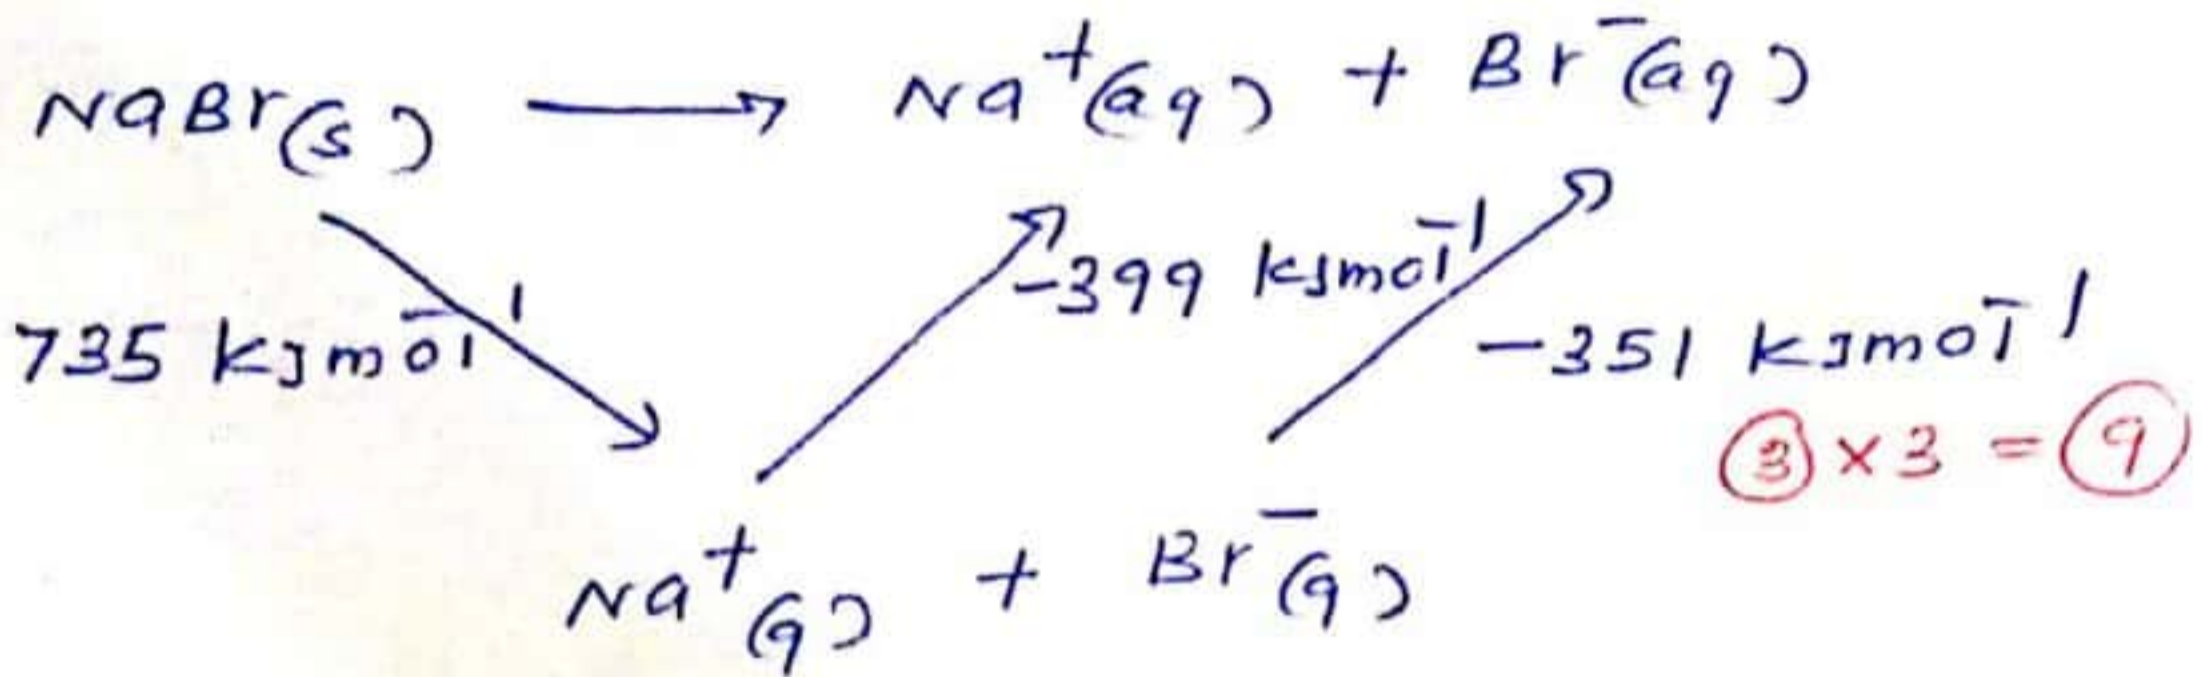 NaBr(s) ⟶ Na⁺(aq) + Br⁻(aq)
-399 kJmol⁻¹
735 kJmol⁻¹
-351 kJmol⁻¹
③ × 3 = ⑨
Na⁺(g) + Br⁻(g)